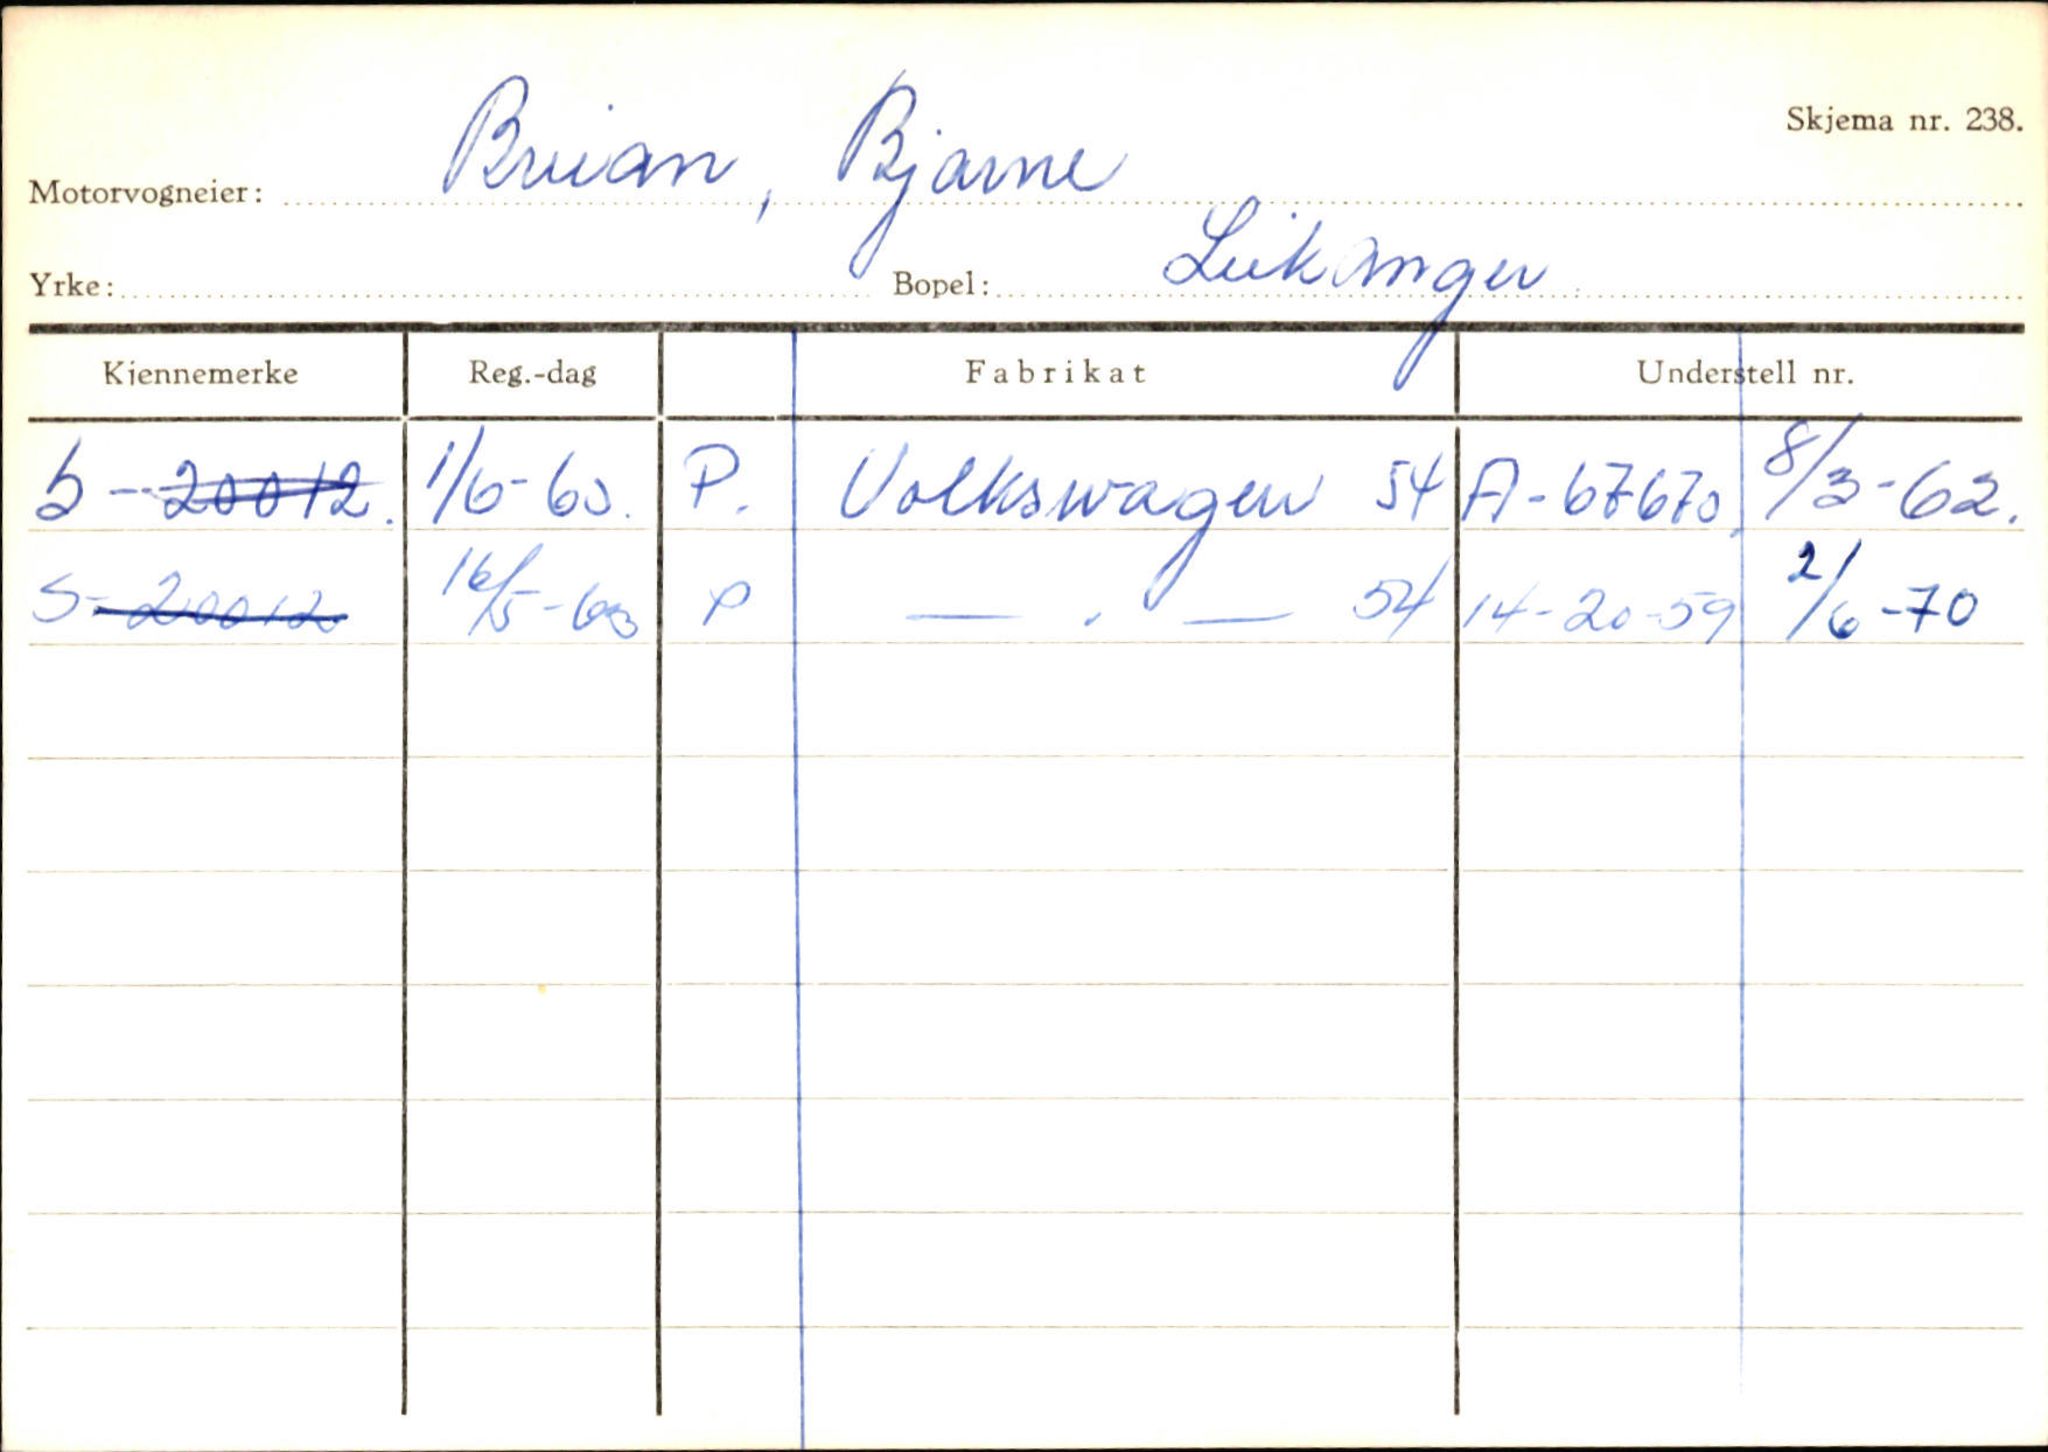 Skjema nr. 238.
Motorvogneier: Bruian, Bjarne
Yrke: Bopel: Leikanger
Kjennemerke Reg.-dag Fabrikat Understell nr.
S-20012. 1/6-60. P. Volkswagen 54 A-67670. 8/3-62.
S-20012 16/5-63 P — " — 54 14-20-59 2/6-70